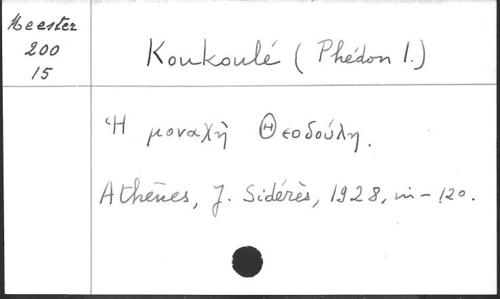 Meester
200
15
Koukoulé (Phédon I.)
Ἡ μοναχὴ Θεοδούλη.
Athènes, J. Sidérès, 1928, in-12o.